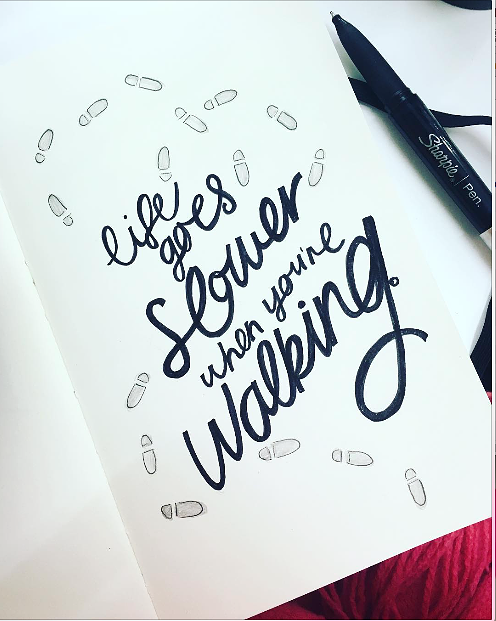 life
goes
slower
when you're
walking.
Sharpie. Pen.